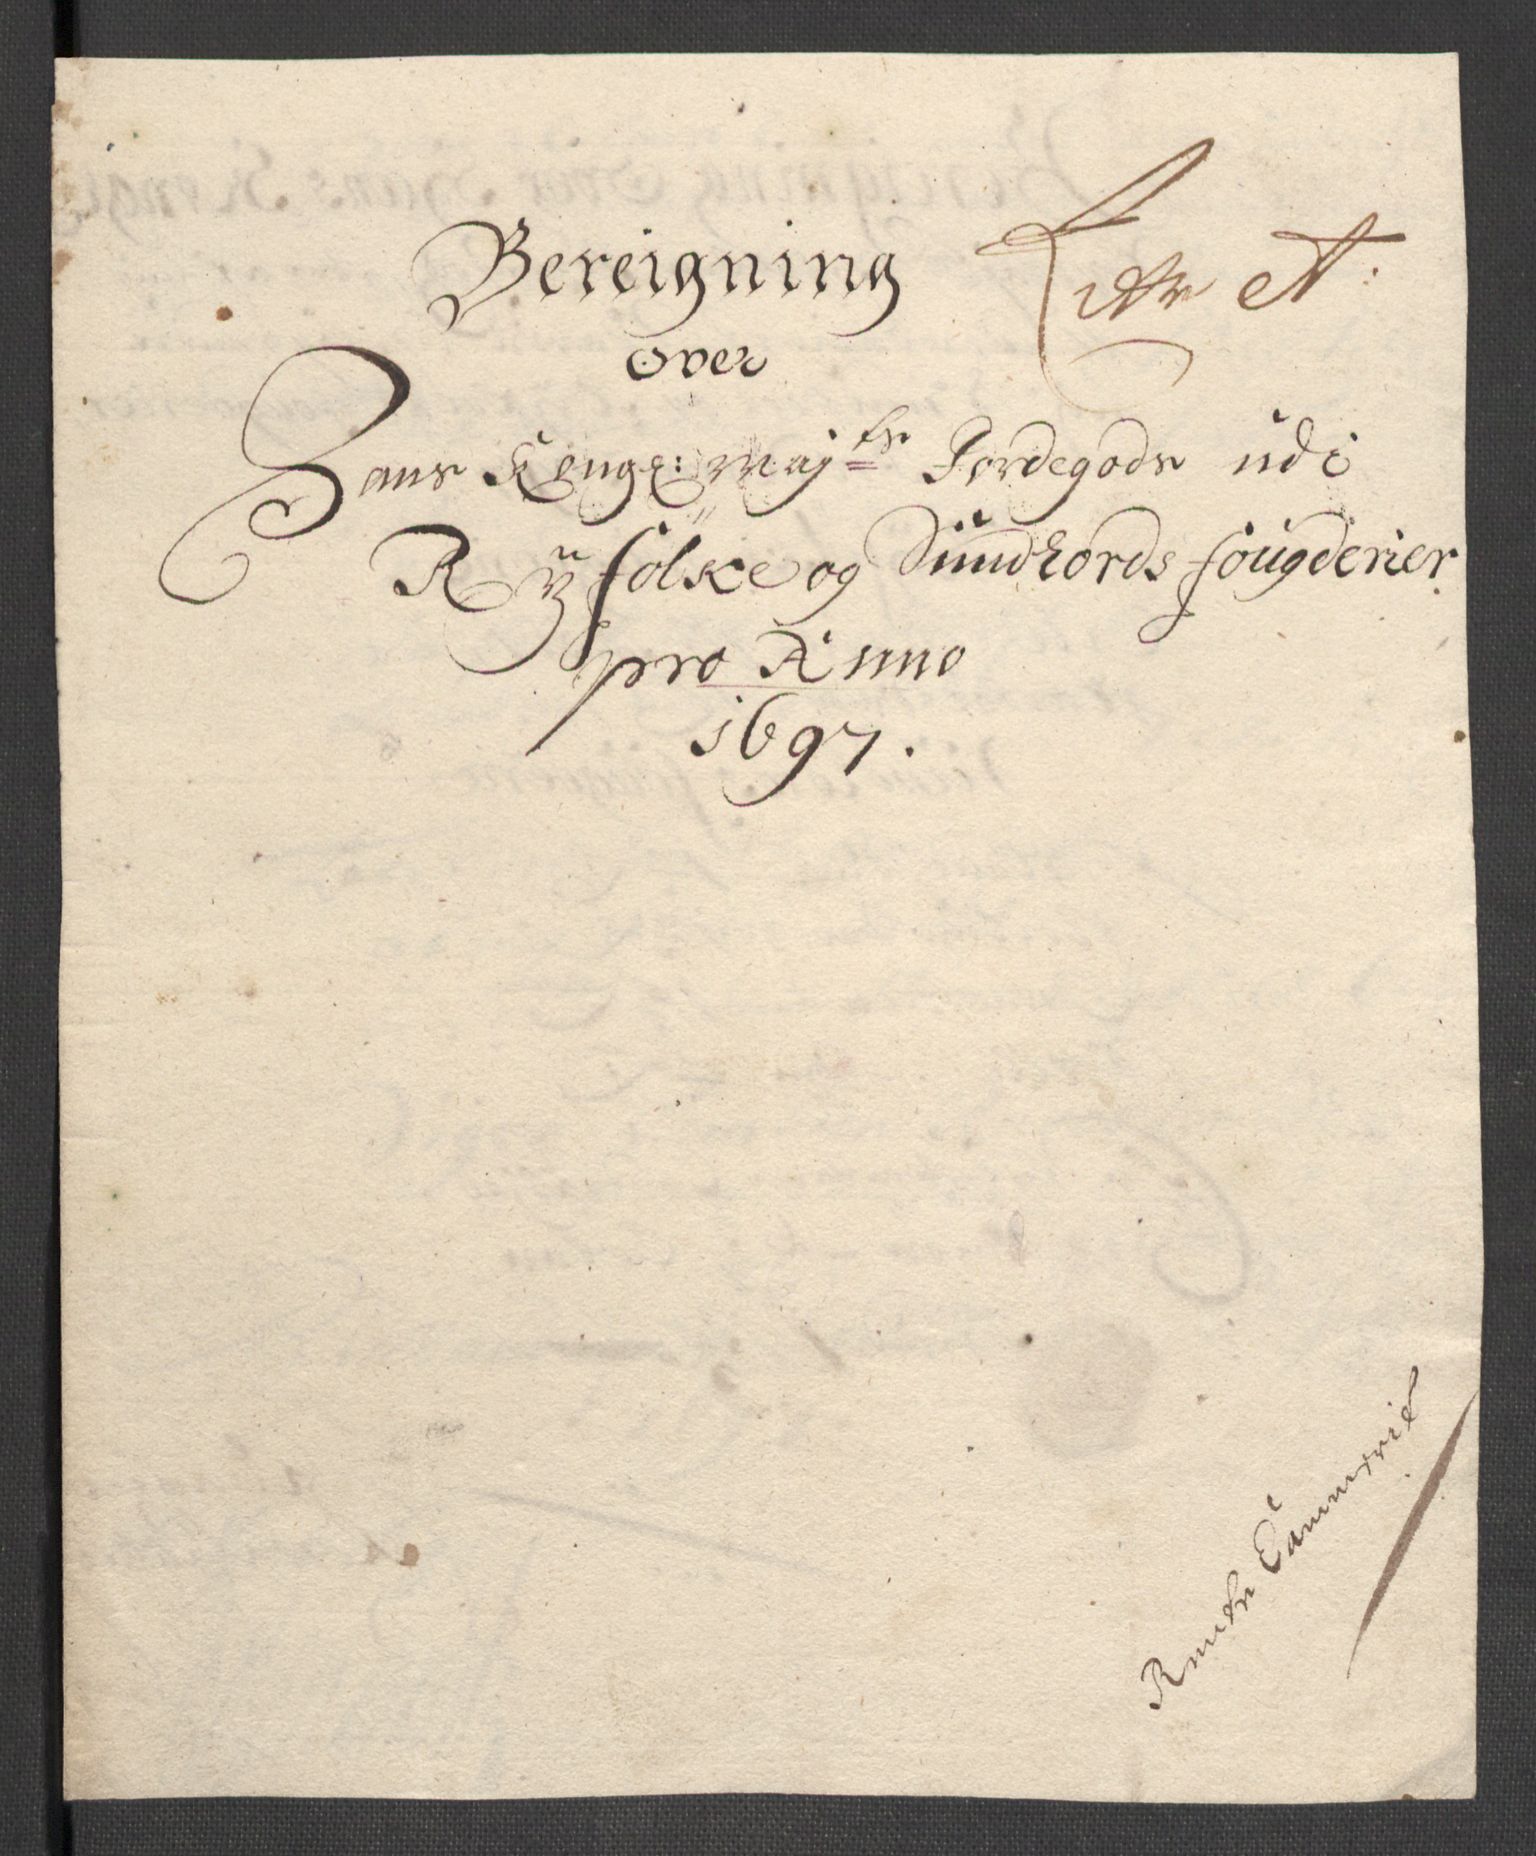 Bereigning
Litr A:
over
Hans Kongl: Maij.ts Jordegods udi
Ryfölke og Sundhords fougderier
pro Anno
1697.
Rente Cammerit